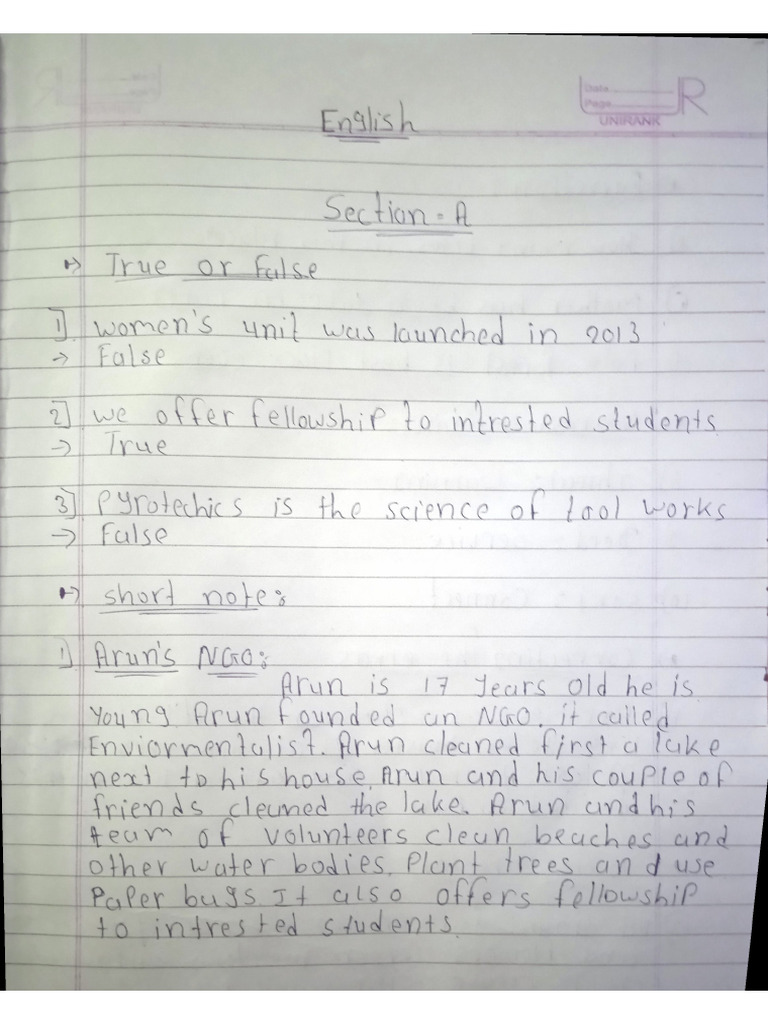 Date
Page
R
UNIRANK
English
Section - A
True or False
1] women's unit was launched in 2013
→ False
2] we offer fellowship to intrested students
→ True
3] Pyrotechics is the science of tool works
→ False
short note:
1] Arun's NGO:
Arun is 17 years old he is
young Arun founded an NGO. it called
Enviormentalist. Arun cleaned first a lake
next to his house. Arun and his couple of
friends cleaned the lake. Arun and his
team of volunteers clean beaches and
other water bodies. Plant trees and use
Paper bags It also offers fellowship
to intrested students.